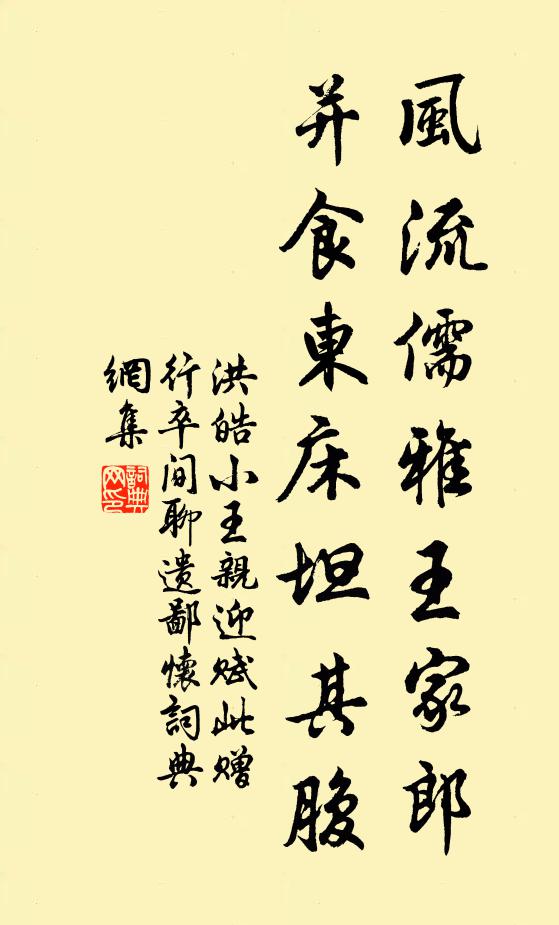 風流儒雅王家郎
并食東床坦其腹
洪皓小王親迎賦此贈
行卒闻聊遗鄙懷詞典
網集
詞典
网印